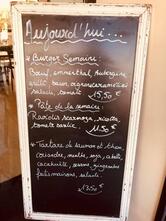 Aujourd'hui...
Burger Semaine:
Bœuf, emmental, Aubergine
grillé, bacon, oignons caramélisés
salade, tomate
15,50 €
Pâte de la semaine:
Raviolis scamorza, ricotta,
tomate basilic
11,50 €
Tartare de saumon et thon,
coriandre, menthe, soja,
cacahuète, sésame, gingembre
frites maison, salade
13,50 €